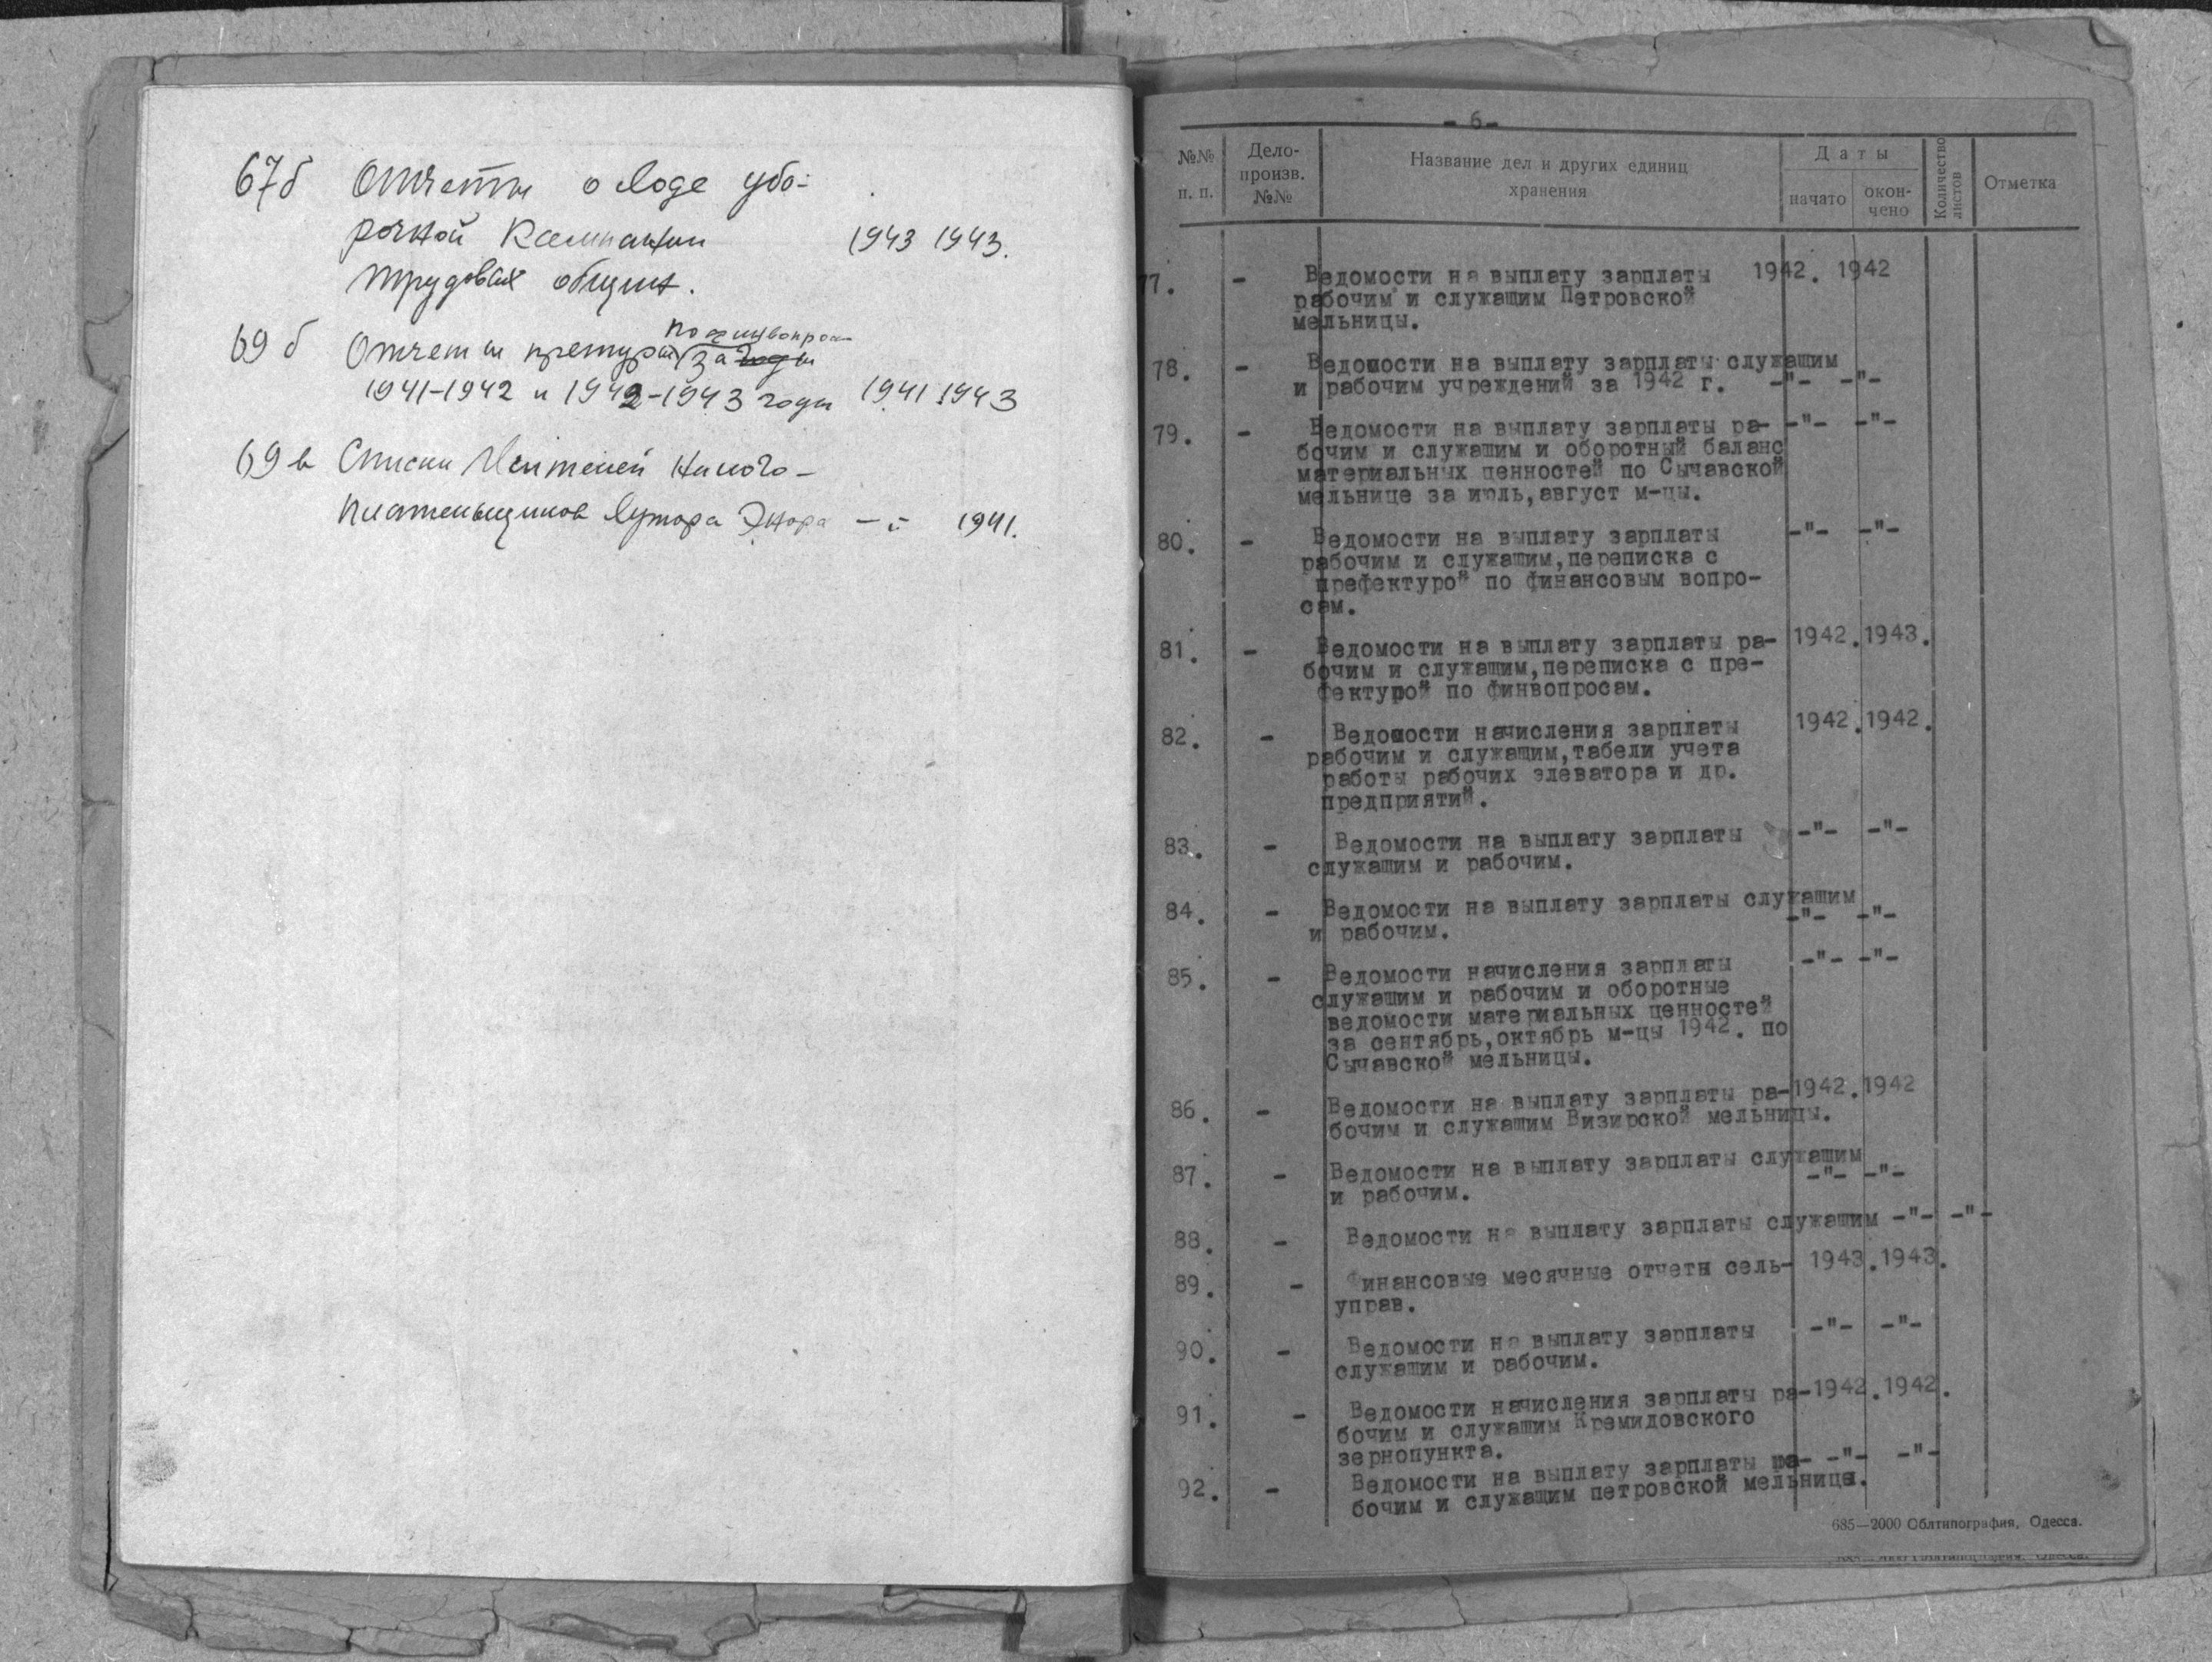 67б Отчеты о ходе убо-
рочной кампании 1943 1943.
трудовых общин.
по финвопросам
69б Отчеты претуры за годы
1941-1942 и 1942-1943 годы 1941 1943
69в Списки жителей налого-
плательщиков хутора -"- 1941.
- 6 -
№№ п. п.
Дело-произв. №№
Название дел и других единиц хранения
Даты
начато
окон-чено
Количество листов
Отметка
77. - Ведомости на выплату зарплаты 1942. 1942
рабочим и служащим Петровской
мельницы.
78. - Ведомости на выплату зарплаты служащим
и рабочим учреждений за 1942 г. -"- -"-
79. - Ведомости на выплату зарплаты ра- -"- -"-
бочим и служащим и оборотный баланс
материальных ценностей по Сычавской
мельнице за июль,август м-цы.
80. - Ведомости на выплату зарплаты -"- -"-
рабочим и служащим,переписка с
префектурой по финансовым вопро-
сам.
81. - Ведомости на выплату зарплаты ра- 1942. 1943.
бочим и служащим,переписка с пре-
фектурой по финвопросам.
82. - Ведомости начисления зарплаты 1942. 1942.
рабочим и служащим,табели учета
работы рабочих элеватора и др.
предприятий.
83. - Ведомости на выплату зарплаты -"- -"-
служащим и рабочим.
84. - Ведомости на выплату зарплаты служащим
и рабочим. -"- -"-
85. - Ведомости начисления зарплаты -"- -"-
служащим и рабочим и оборотные
ведомости материальных ценностей
за сентябрь,октябрь м-цы 1942. по
Сычавской мельницы.
86. - Ведомости на выплату зарплаты ра- 1942. 1942
бочим и служащим Визирской мельницы.
87. - Ведомости на выплату зарплаты служащим
и рабочим. -"- -"-
88. - Ведомости на выплату зарплаты служащим -"- -"-
89. - Финансовые месячные отчеты сель- 1943. 1943.
управ.
90. - Ведомости на выплату зарплаты -"- -"-
служащим и рабочим.
91. - Ведомости начисления зарплаты ра- 1942. 1942.
бочим и служащим Кремидовского
зернопункта.
92. - Ведомости на выплату зарплаты ра- -"- -"-
бочим и служащим петровской мельницы.
685—2000 Облтипография, Одесса.